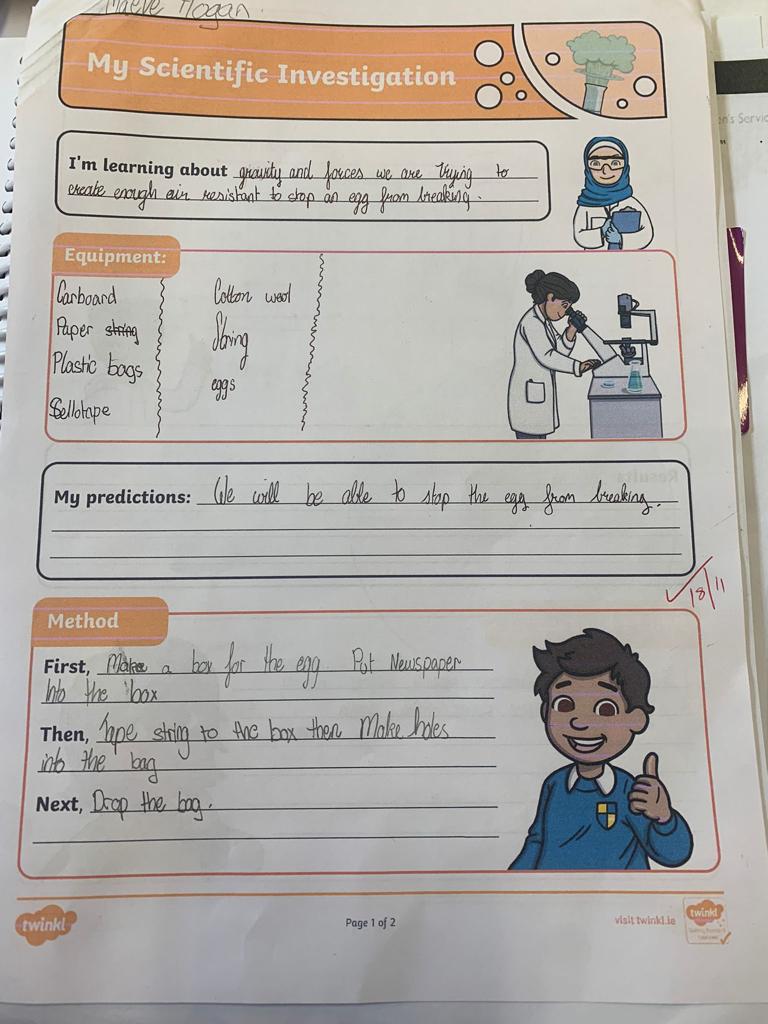 Maeve Hogan.
My Scientific Investigation
en's Servic
I'm learning about gravity and forces we are trying to
create enough air resistant to stop an egg from breaking.
Equipment:
Carboard
Cotton wool
Paper string
String
Plastic bags
eggs
Sellotape
Results
My predictions: We will be able to stop the egg from breaking.
18/11
Method
First, Make a box for the egg. Put Newspaper
into the box
Then, Tape string to the box then Make holes
into the bag
Next, Drop the bag.
twinkl
Page 1 of 2
visit twinkl.ie
twinkl